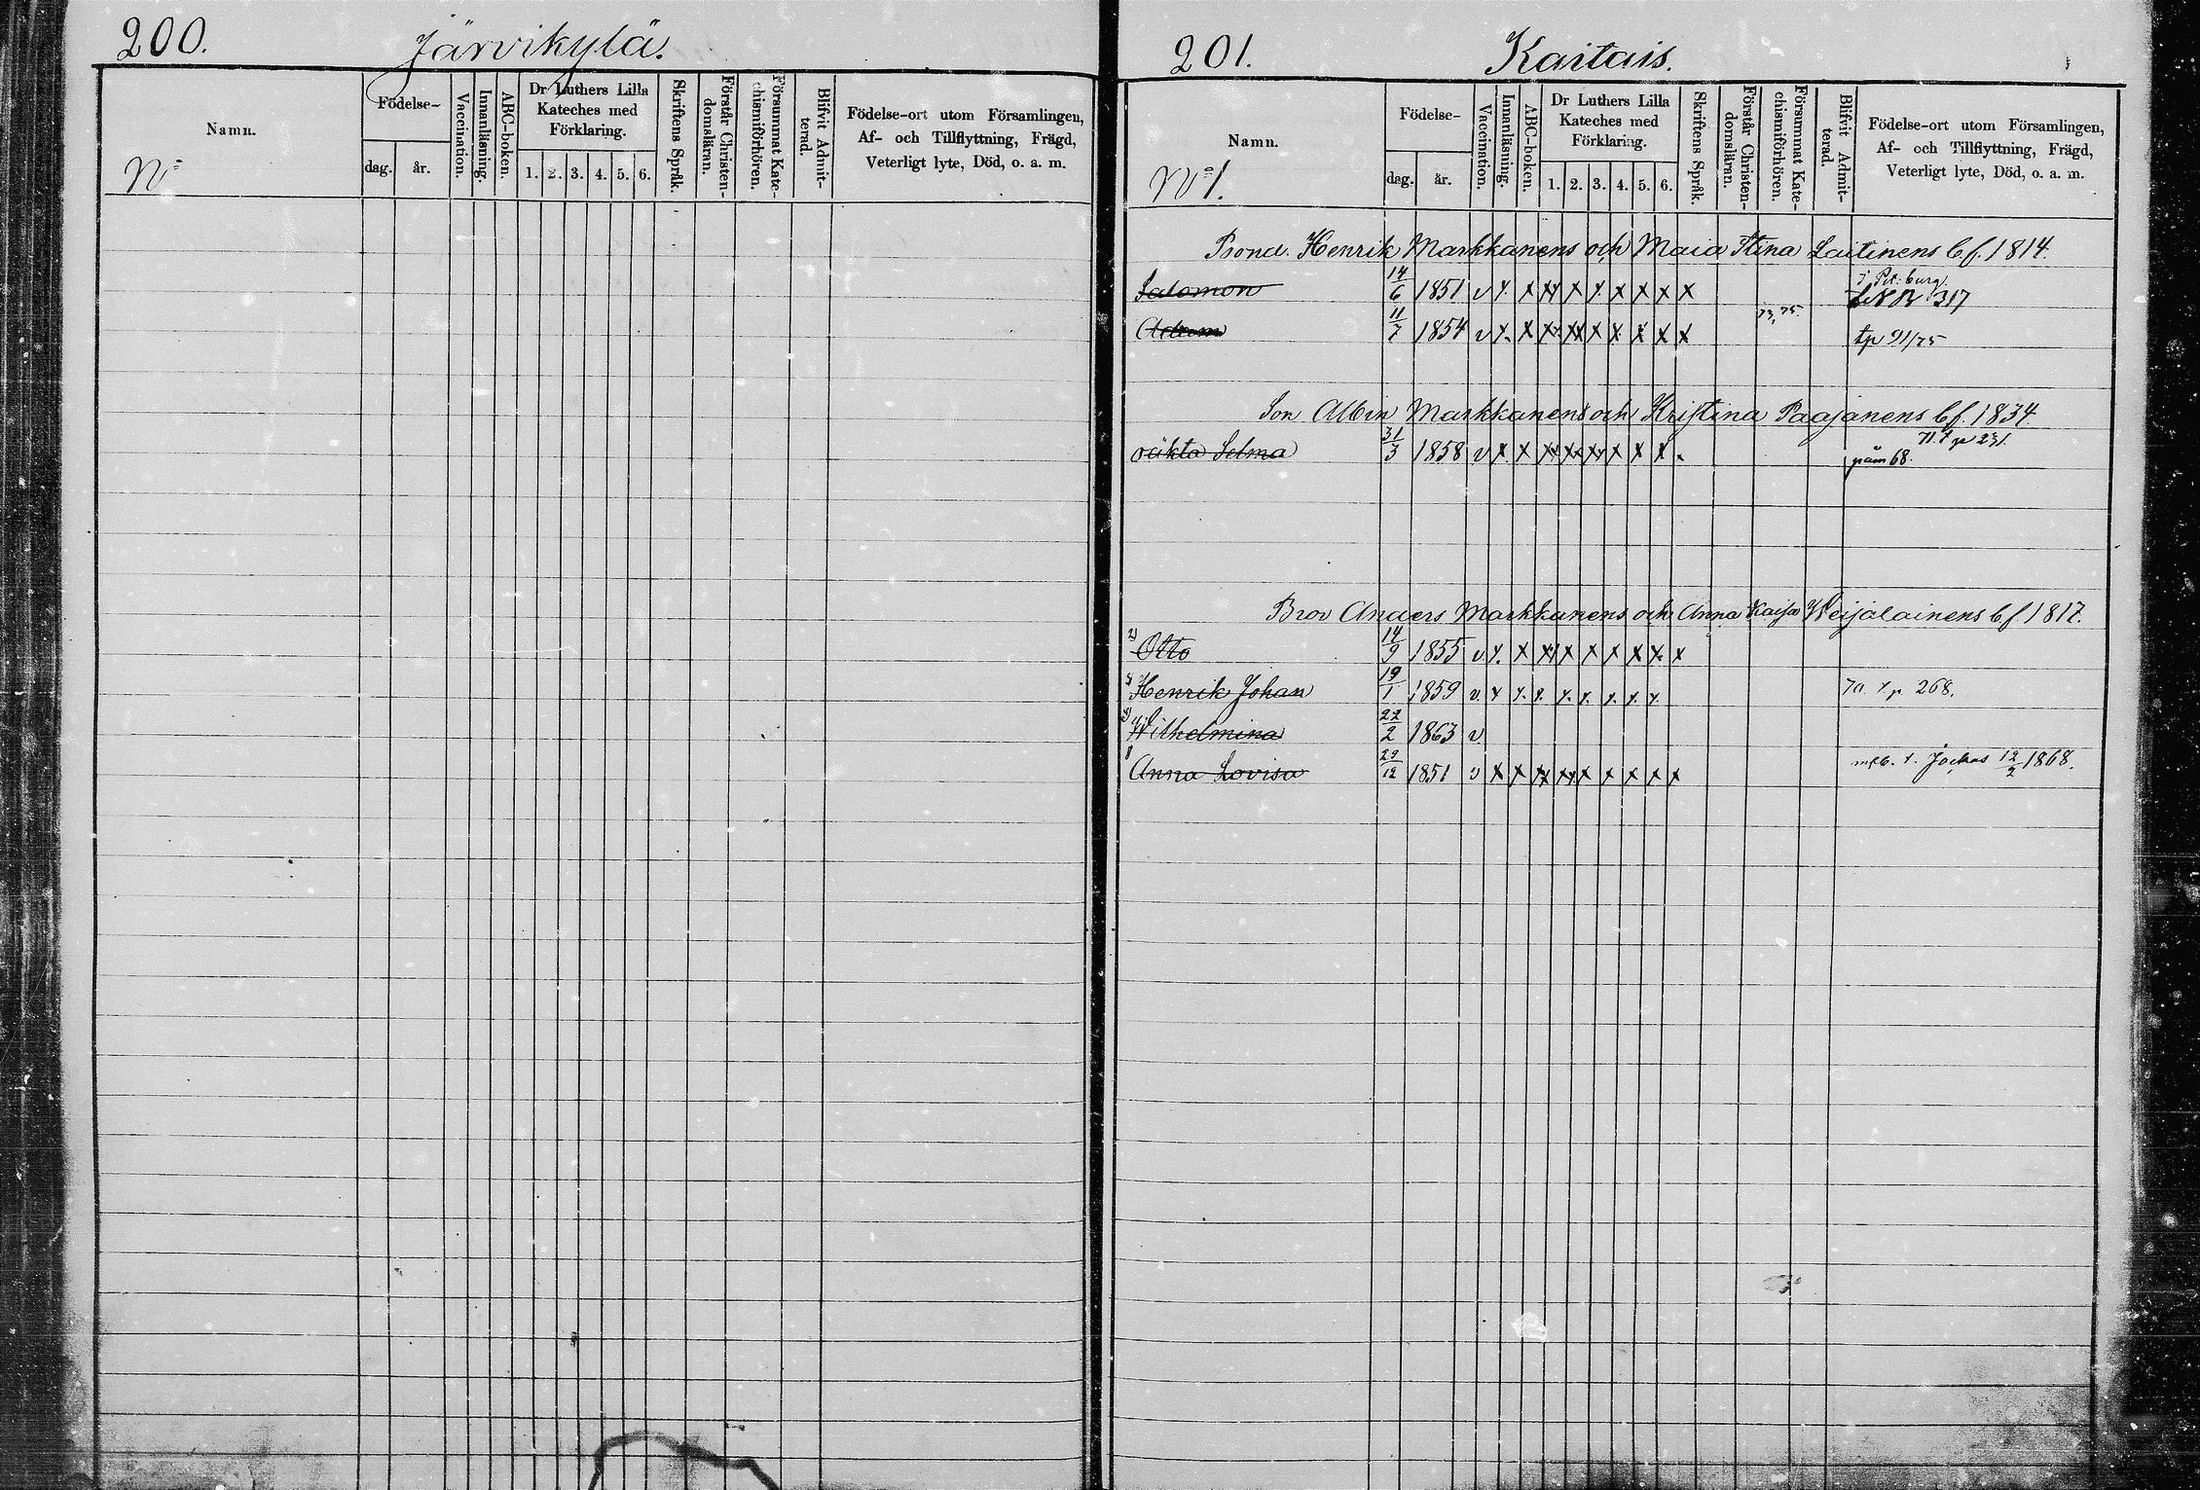 200.
Järvikylä.
Namn.
Nº
Födelse-
dag.
år.
Vaccination.
Innanläsning.
ABC-boken.
Dr Luthers Lilla
Kateches med
Förklaring.
1. 2. 3. 4. 5. 6.
Skriftens Språk.
Förstår Christen-
domsläran.
Försummat Kate-
chismiförhören.
Blifvit Admit-
terad.
Födelse-ort utom Församlingen,
Af- och Tillflyttning, Frägd,
Veterligt lyte, Död, o. a. m.
201.
Kaitais.
Namn.
Nº 1.
Födelse-
dag.
år.
Vaccination.
Innanläsning.
ABC-boken.
Dr Luthers Lilla
Kateches med
Förklaring.
1. 2. 3. 4. 5. 6.
Skriftens Språk.
Förstår Christen-
domsläran.
Försummat Kate-
chismiförhören.
Blifvit Admit-
terad.
Födelse-ort utom Församlingen,
Af- och Tillflyttning, Frägd,
Veterligt lyte, Död, o. a. m.
Bond. Henrik Markkanens och Maia Stina Laitinens b.f. 1814.
i Pet.burg.
Salomon 14/6 1851 v x x x x x x x x x 317
Adam 11/7 1854 v x x x x x x x x x 73, 75. tp 91/75
Son Albin Markkanens och Kristina Paajanens b.f. 1834
71. t p 231.
oäkta Selma 31/3 1858 v x x x x x x x x 68.
Brov Anders Markkanens och Anna Kaisa Weijalainens b.f. 1817.
2) Otto 14/9 1855 v x x x x x x x x x
3) Henrik Johan 19/1 1859 v. x x x x x x x x 70. t p 268.
4) Wilhelmina 22/2 1863 v.
1 Anna Lovisa 29/12 1851 v x x x x x x x x x t. Jockas 12/2 1868.